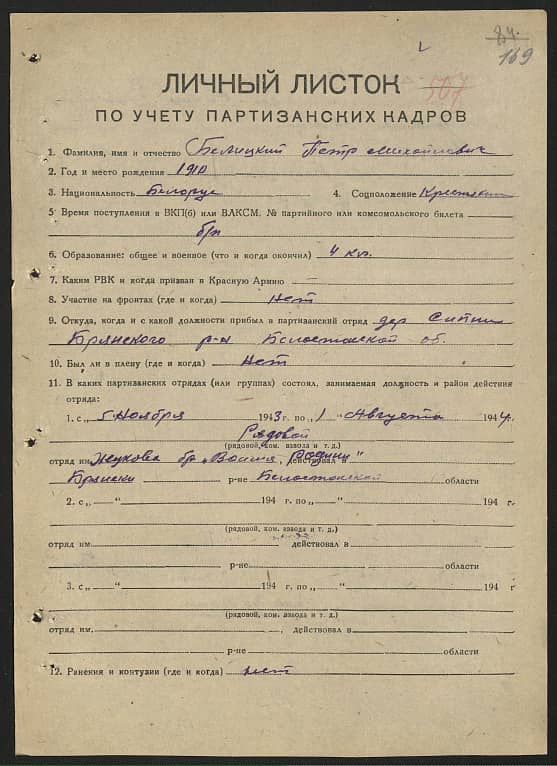 84.
169
ЛИЧНЫЙ ЛИСТОК
507
ПО УЧЕТУ ПАРТИЗАНСКИХ КАДРОВ
1. Фамилия, имя и отчество Белицкий Петр Михайлович
2. Год и место рождения 1910
3. Национальность Белорус 4. Соцположение Крестьянин
5 Время поступления в ВКП(б) или ВЛКСМ, № партийного или комсомольского билета
б/п
6. Образование: общее и военное (что и когда окончил) 4 кл.
7. Каким РВК и когда призван в Красную Армию —
8. Участие на фронтах (где и когда) нет
9. Откуда, когда и с какой должности прибыл в партизанский отряд дер
Брянского р-н Белостокской об.
10. Был ли в плену (где и когда) Нет
11. В каких партизанских отрядах (или группах) состоял, занимаемая должность и район действия
отряда:
1. с „ 5 Ноября 1943 г. по „ 1 " Августа 1944 г.
Рядовой
(рядовой, ком. взвода и т. д.)
отряд им Жукова бр „ Родины" действовал в
Брянски р-не Белостокской области
2. с „ " 194 г. по „ " 194 г.
(рядовой, ком. взвода и т. д.)
отряд им. действовал в
р-не области
3. с „ " 194 г. по „ " 194 г.
(рядовой, ком. взвода и т. д.)
отряд им. , действовал в
р-не области
12. Ранения и контузии (где и когда) нет